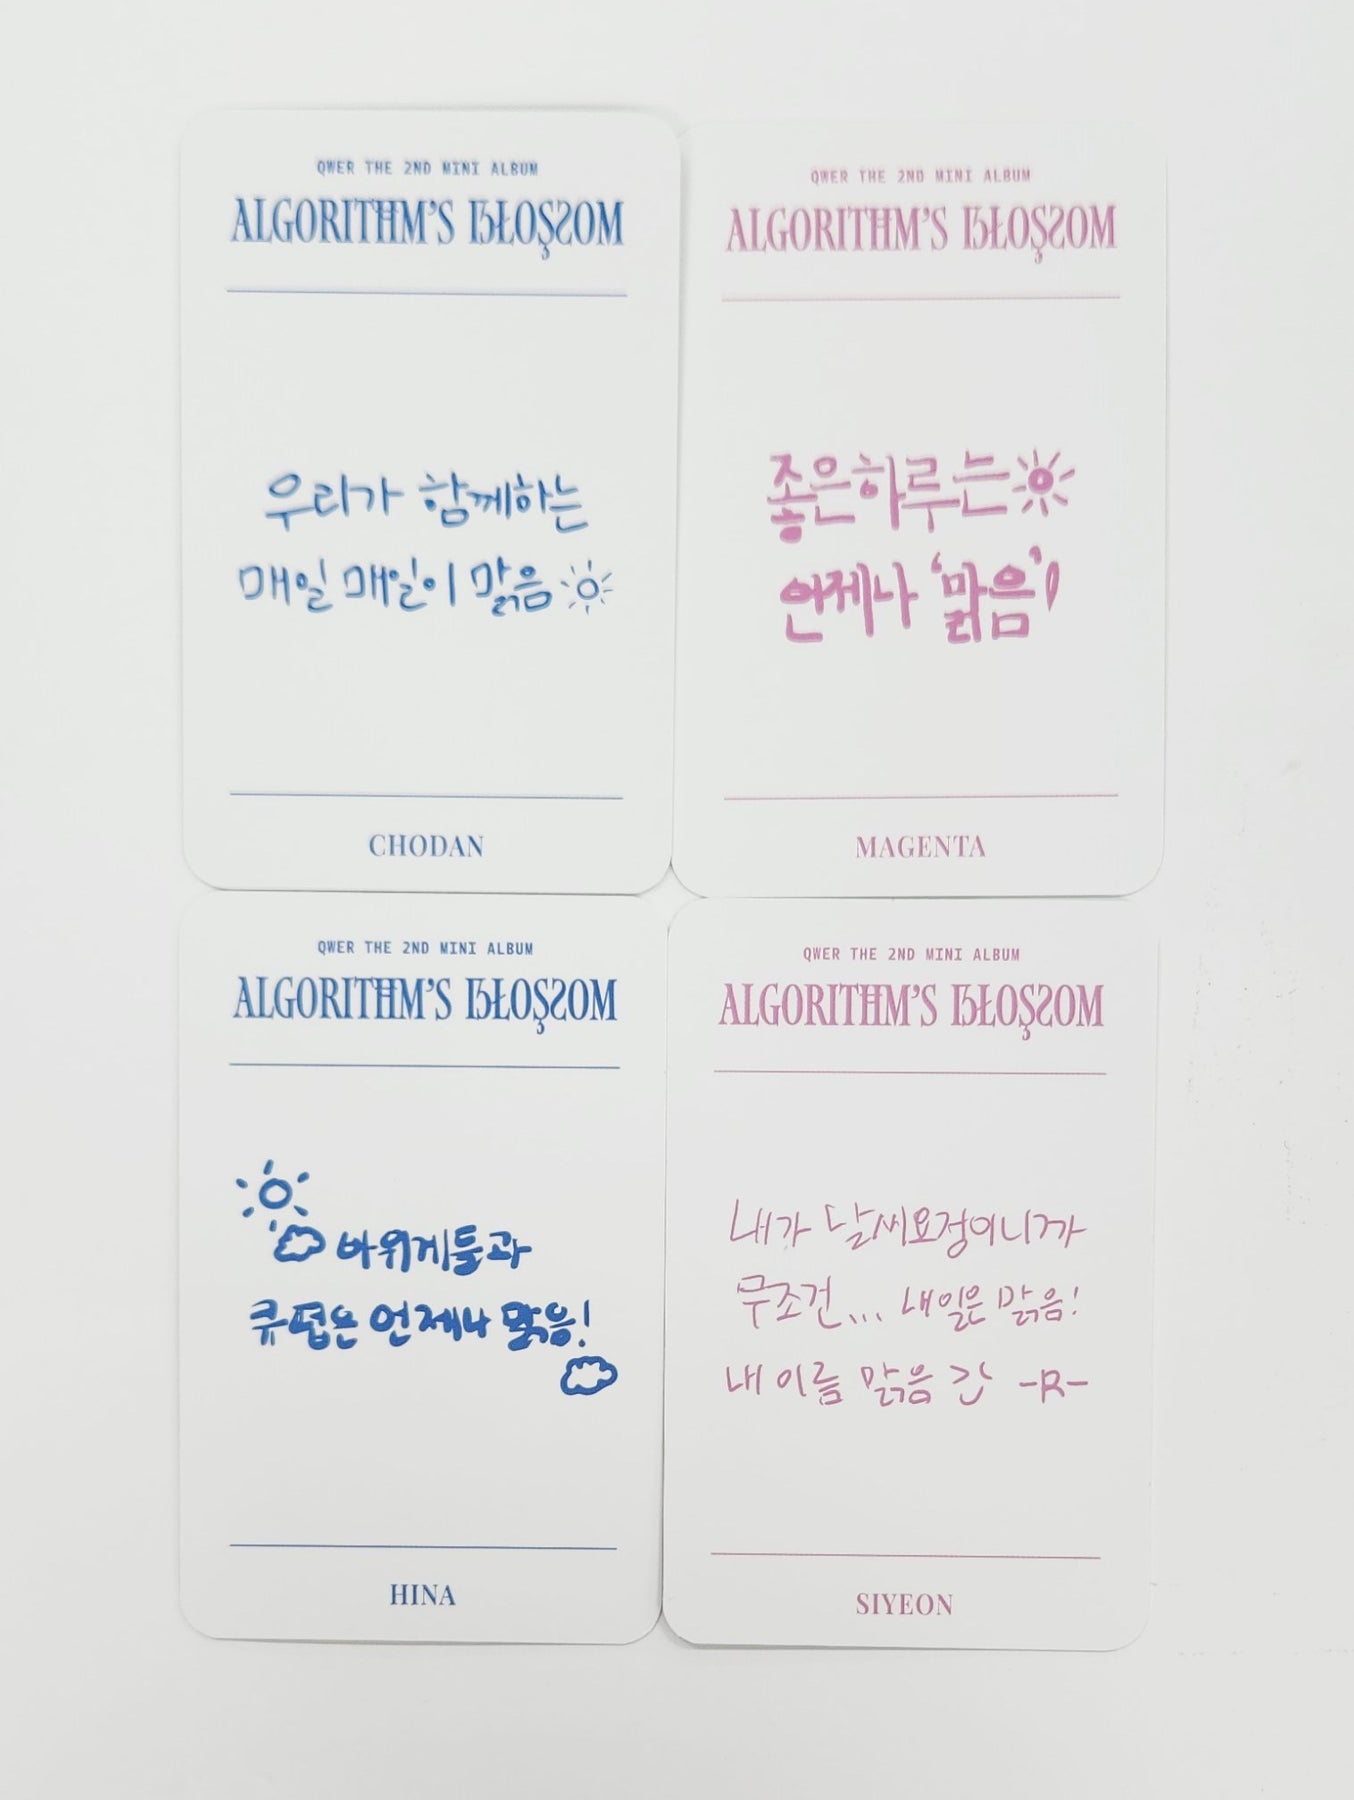 QWER THE 2ND MINI ALBUM
ALGORITHM'S BLOSSOM
우리가 함께하는
매일 매일이 맑음
CHODAN
QWER THE 2ND MINI ALBUM
ALGORITHM'S BLOSSOM
좋은하루는
언제나 '맑음'!
MAGENTA
QWER THE 2ND MINI ALBUM
ALGORITHM'S BLOSSOM
바위게들과
큐떱은 언제나 맑음!
HINA
QWER THE 2ND MINI ALBUM
ALGORITHM'S BLOSSOM
내가 날씨요정이니까
무조건... 내일은 맑음!
내 이름 맑음 간 -R-
SIYEON